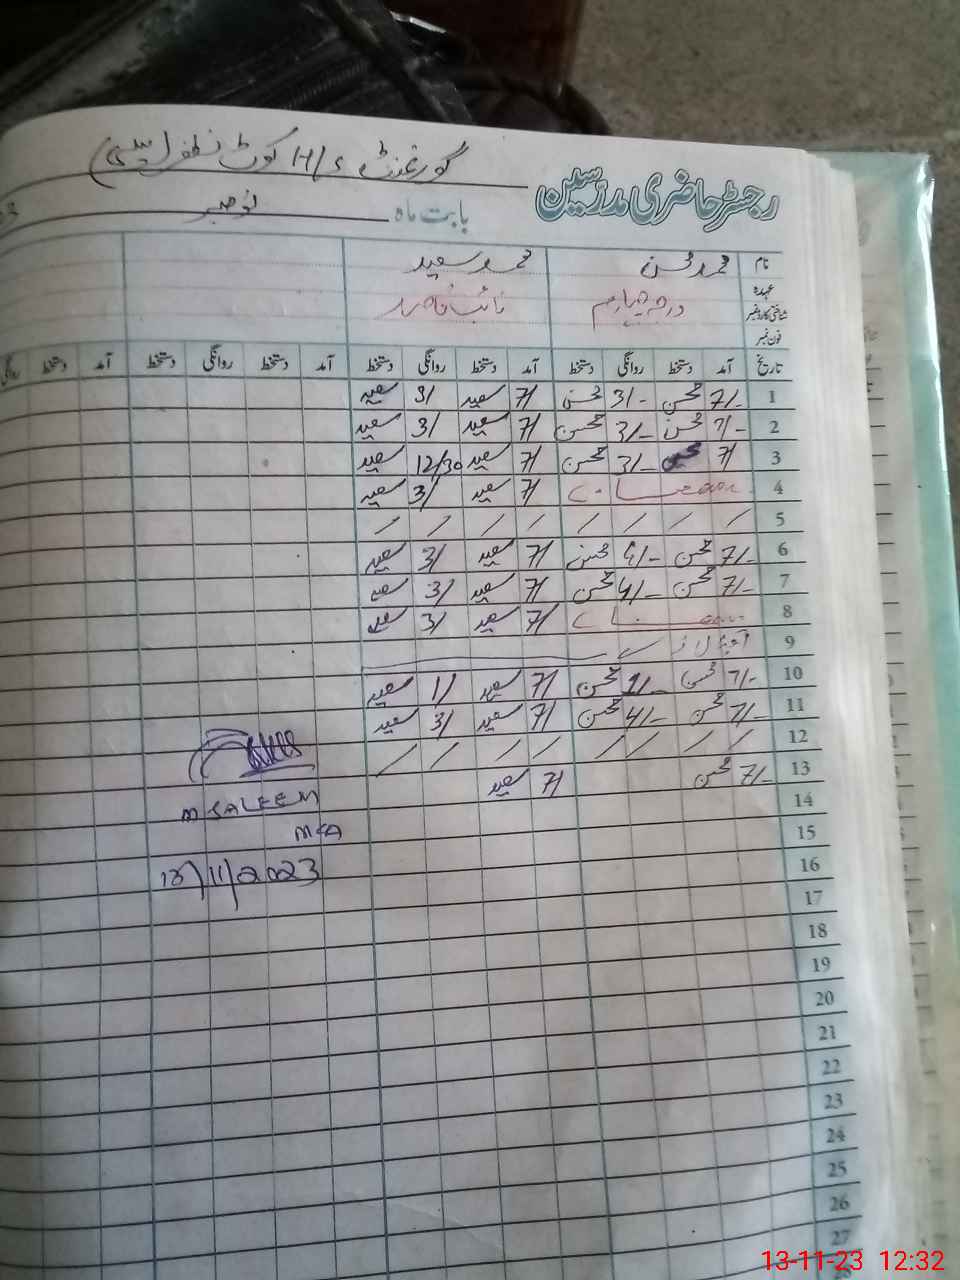 گورنمنٹ H/S کوٹ
رجسٹر حاضری مدرسین
بابت ماہ نومبر
نام محمد محسن محمد سعید
عہدہ درجہ چہارم نائب قاصد
شناختی کارڈ نمبر
فون نمبر
تاریخ آمد دستخط روانگی دستخط آمد دستخط روانگی دستخط آمد دستخط روانگی دستخط آمد دستخط روانگی
1 7/- محسن 3/- محسن 7/ سعید 3/ سعید
2 7/- محسن 3/- محسن 7/ سعید 3/ سعید
3 7/ محسن 3/- محسن 7/ سعید 12/30 سعید
4 7/ سعید 3/ سعید
5 / / / / / / / /
6 7/- محسن 4/- محسن 7/ سعید 3/ سعید
7 7/- محسن 4/- محسن 7/ سعید 3/ سعید
8 7/ سعید 3/ سعید
9 اقبال ڈے
10 7/- محسن 1/- محسن 7/ سعید 1/ سعید
11 7/- محسن 4/- محسن 7/ سعید 3/ سعید
12 / / / / / / / /
13 7/- محسن 7/ سعید
14
M SALEEM
15
MEA
16
13/11/2023
17
18
19
20
21
22
23
24
25
26
27
28
13-11-23 12:32